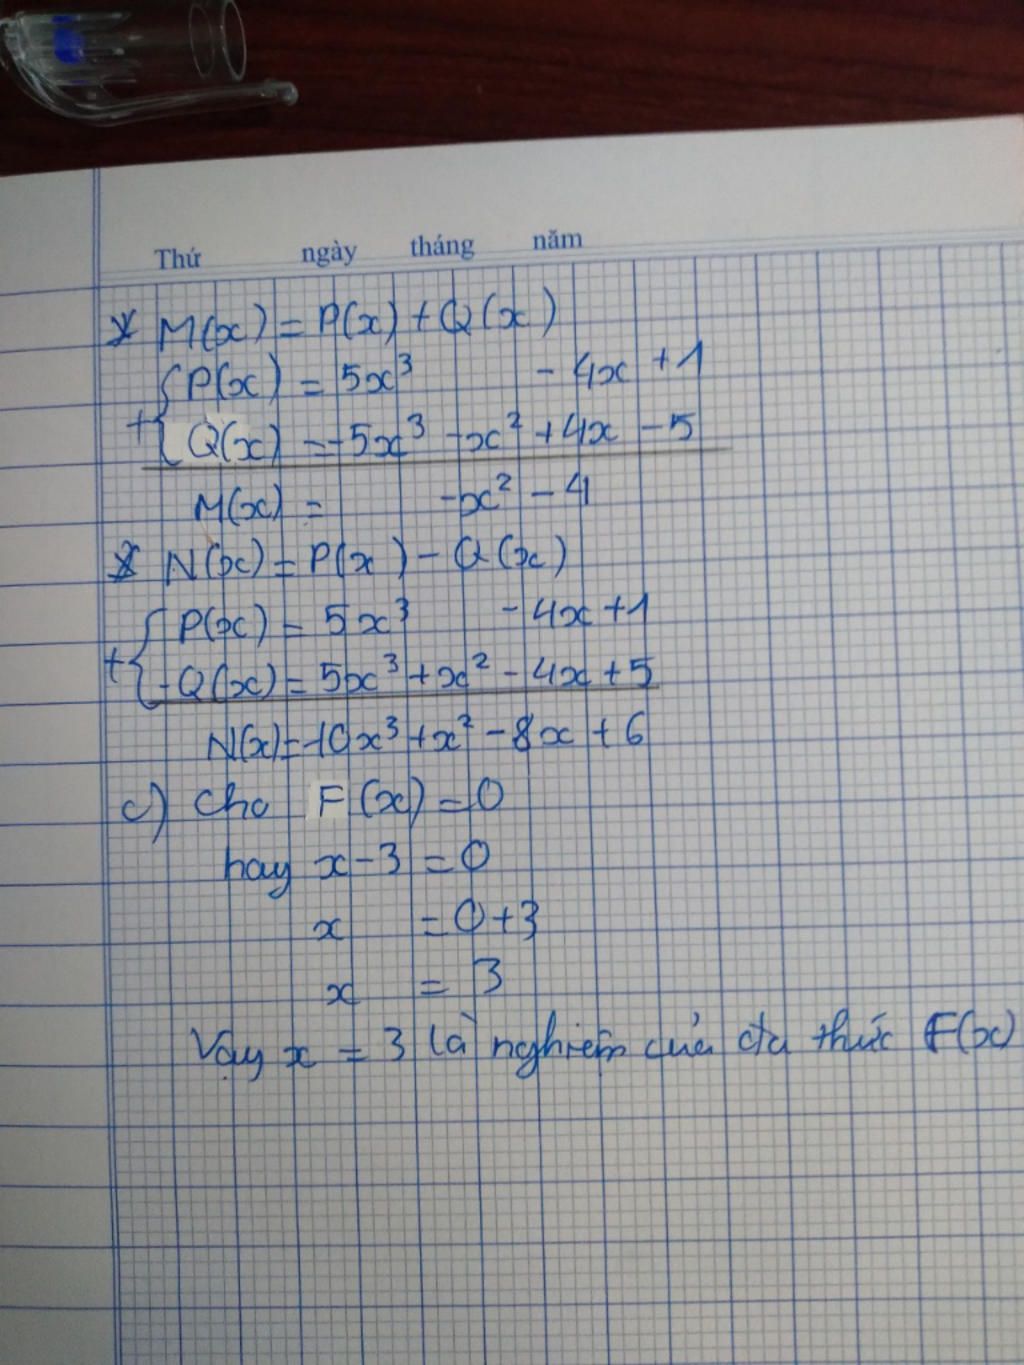 Thứ ngày tháng năm
* M(x) = P(x) + Q(x)
P(x) = 5x³ - 4x + 1
+ Q(x) = -5x³ - x² + 4x - 5
M(x) = -x² - 4
* N(x) = P(x) - Q(x)
P(x) = 5x³ - 4x + 1
+ -Q(x) = 5x³ + x² - 4x + 5
N(x) = 10x³ + x² - 8x + 6
c) Cho F(x) = 0
hay x - 3 = 0
x = 0 + 3
x = 3
Vậy x = 3 là nghiệm của đa thức F(x)